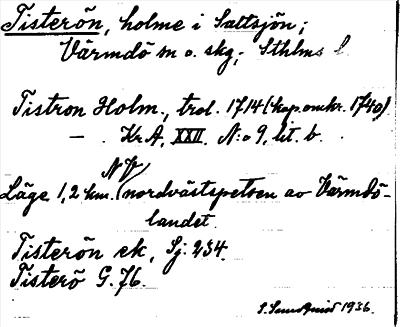 Tisterön, holme i Saltsjön;
Värmdö sn o. skg; Sthlms l.
Tistron Holm, trol. 1714 (kop. omkr. 1740)
— Kr.A, XXII. N:o 9, lit. b.
NV
Läge 1,2 km. (nordvästspetsen av Värmdö-
landet.
Tisterön ek, Sj. 234.
Tisterö G. 76.
1936.